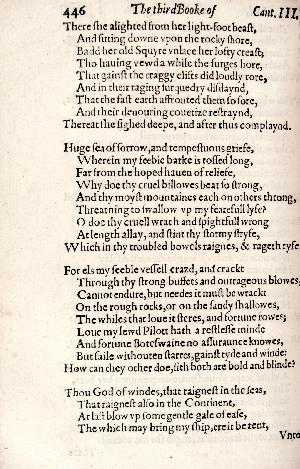 446 The third Booke of Cant. III.
There she alighted from her light-foot beast,
And sitting downe vpon the rocky shore,
Badd her old Squyre vnlace her lofty creast;
Tho hauing vewd a while the surges hore,
That gainst the craggy clifts did loudly rore,
And in their raging surquedry disdaynd,
That the fast earth affronted them so sore,
And their deuouring couetize restraynd,
Thereat she sighed deepe, and after thus complaynd.
Huge sea of sorrow, and tempestuous griefe,
Wherein my feeble barke is tossed long,
Far from the hoped hauen of reliefe,
Why doe thy cruel billowes beat so strong,
And thy moyst mountaines each on others throng,
Threatning to swallow vp my fearefull lyfe?
O doe thy cruell wrath and spightfull wrong
At length allay, and stint thy stormy stryfe,
Which in thy troubled bowels raignes, & rageth ryfe.
For els my feeble vessell crazd, and crackt
Through thy strong buffets and outrageous blowes,
Cannot endure, but needes it must be wrackt
On the rough rocks, or on the sandy shallowes,
The whiles that loue it steres, and fortune rowes;
Loue my lewd Pilott hath a restlesse minde
And fortune Boteswaine no assuraunce knowes,
But saile withouten starres, gainst tyde and winde:
How can they other doe, sith both are bold and blinde?
Thou God of windes, that raignest in the seas,
That raignest also in the Continent,
At last blow vp some gentle gale of ease,
The which may bring my ship, ere it be rent,
Vnto